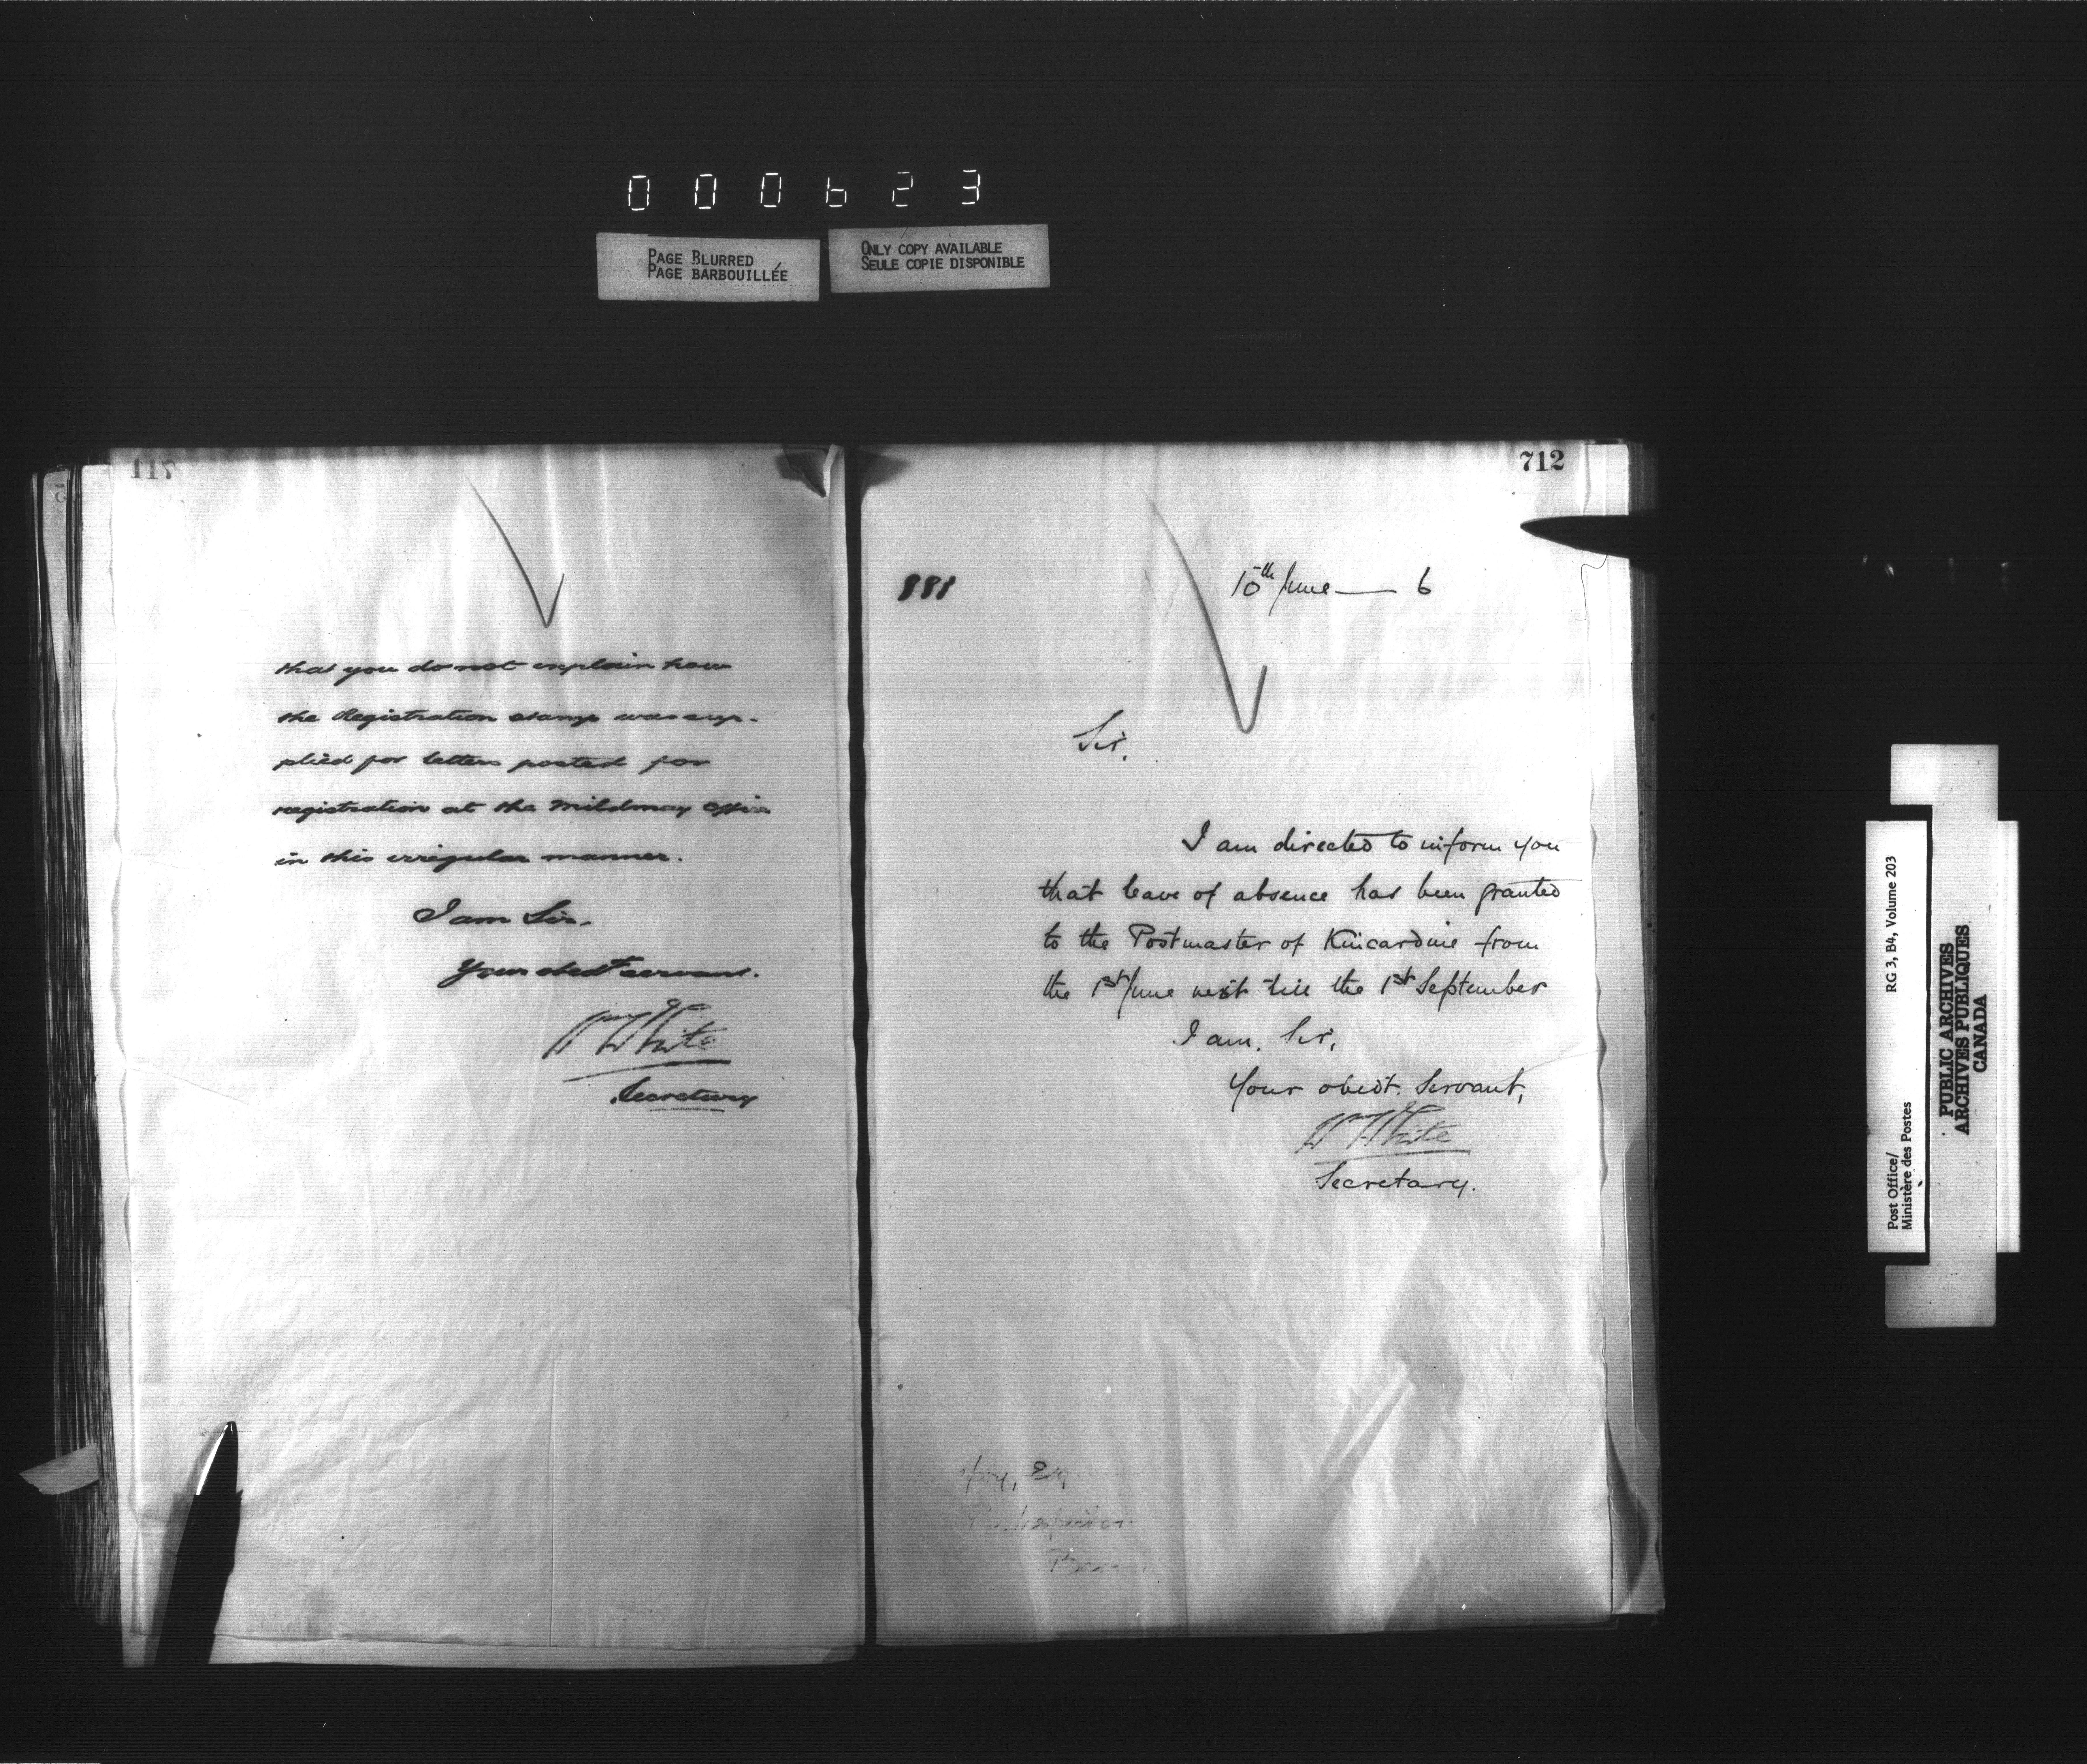 000623
PAGE BLURRED
PAGE BARBOUILLÉE
ONLY COPY AVAILABLE
SEULE COPIE DISPONIBLE
that you do not explain how
the Registration stamp was sup-
plied for letters posted for
registration at the Mildmay Office
in this irregular manner.
I am Sir,
Your obedt servant.
W White
Secretary
712
888
10th June — 6
Sir,
I am directed to inform you
that leave of absence has been granted
to the Postmaster of Kincardine from
the 1st June next till the 1st September
I am, Sir,
Your obedt. Servant,
W White
Secretary.
Esq
Post Office/
Ministère des Postes
RG 3, B4, Volume 203
PUBLIC ARCHIVES
ARCHIVES PUBLIQUES
CANADA